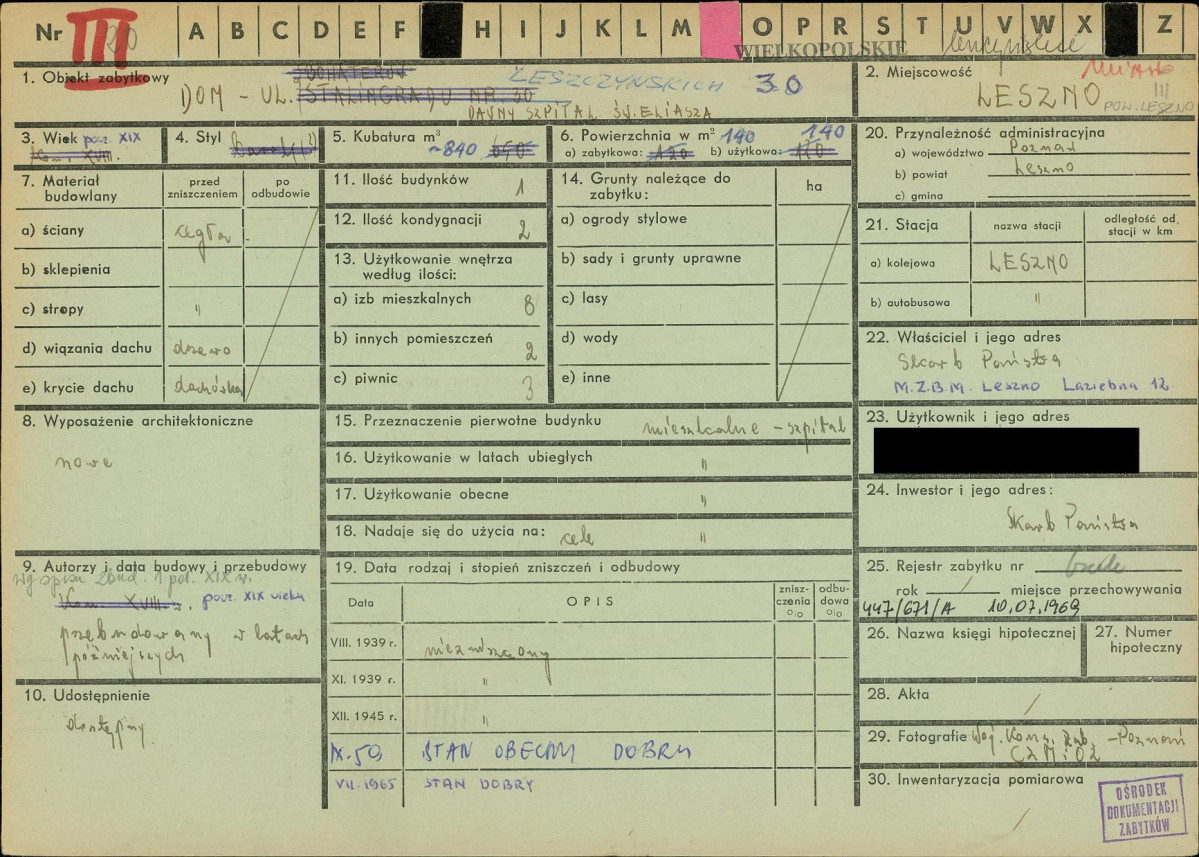 Nr III 20 A B C D E F H I J K L M O P R S T U V W X Z
WIELKOPOLSKIE
Miasto III
1. Obiekt zabytkowy
BOHATERÓW LESZCZYŃSKICH 30
DOM - UL. STALINGRADU NR. 30
DAWNY SZPITAL ŚW. ELIASZA
2. Miejscowość
LESZNO
POW. LESZNO
3. Wiek pocz. XIX
Kon. XVIII.
4. Styl
5. Kubatura m³
~840 650
6. Powierzchnia w m² 140 140
a) zabytkowa: 120 b) użytkowa: 110
20. Przynależność administracyjna
a) województwo Poznań
b) powiat Leszno
c) gmina
7. Materiał budowlany
przed zniszczeniem
po odbudowie
a) ściany cegła
b) sklepienia
c) stropy "
d) wiązania dachu drzewo
e) krycie dachu dachówka
11. Ilość budynków 1
12. Ilość kondygnacji 2
13. Użytkowanie wnętrza według ilości:
a) izb mieszkalnych 8
b) innych pomieszczeń 2
c) piwnic 3
14. Grunty należące do zabytku:
ha
a) ogrody stylowe
b) sady i grunty uprawne
c) lasy
d) wody
e) inne
21. Stacja
nazwa stacji
odległość od stacji w km
a) kolejowa LESZNO
b) autobusowa "
22. Właściciel i jego adres
Skarb Państwa
M.Z.B.M. Leszno Łaziebna 12
8. Wyposażenie architektoniczne
nowe
15. Przeznaczenie pierwotne budynku mieszkalne - szpital
16. Użytkowanie w latach ubiegłych "
17. Użytkowanie obecne "
18. Nadaje się do użycia na: cele "
23. Użytkownik i jego adres
24. Inwestor i jego adres:
Skarb Państwa
9. Autorzy i data budowy i przebudowy
wg spisu zbud. 1 poł. XIX w.
Kon. XVIII w. pocz. XIX wieku
przebudowany w latach
późniejszych
10. Udostępnienie
dostępny
19. Data rodzaj i stopień zniszczeń i odbudowy
Data
OPIS
znisz-czenia o/o
odbu-dowa o/o
VIII. 1939 r. niezniszczony
XI. 1939 r. "
XII. 1945 r. "
IX.59 STAN OBECNY DOBRY
VII.1965 STAN DOBRY
25. Rejestr zabytku nr
rok / miejsce przechowywania
447/671/A 10.07.1969
26. Nazwa księgi hipotecznej
27. Numer hipoteczny
28. Akta /
29. Fotografie Woj. Kons. Zab. - Poznań
CZM i OZ
30. Inwentaryzacja pomiarowa
/
OŚRODEK
DOKUMENTACJI
ZABYTKÓW